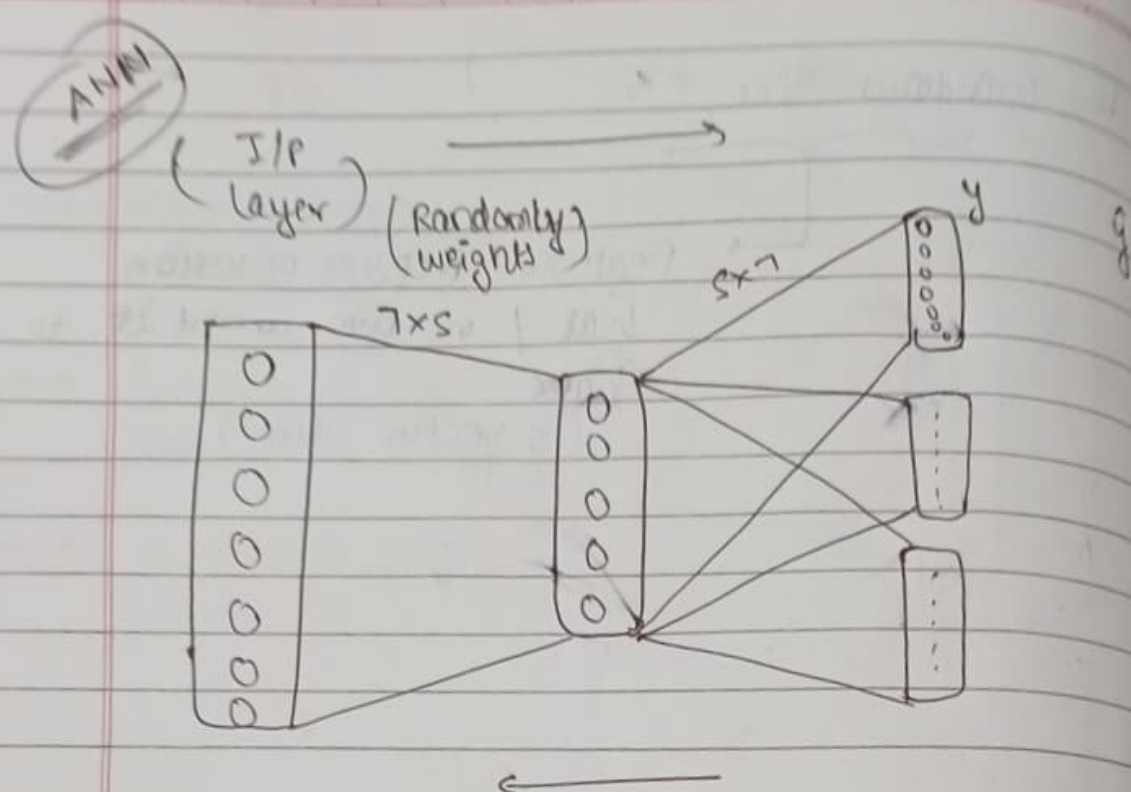 ANN
( I/P
Layer )
( Randomly
weights )
7x5
5x7
y